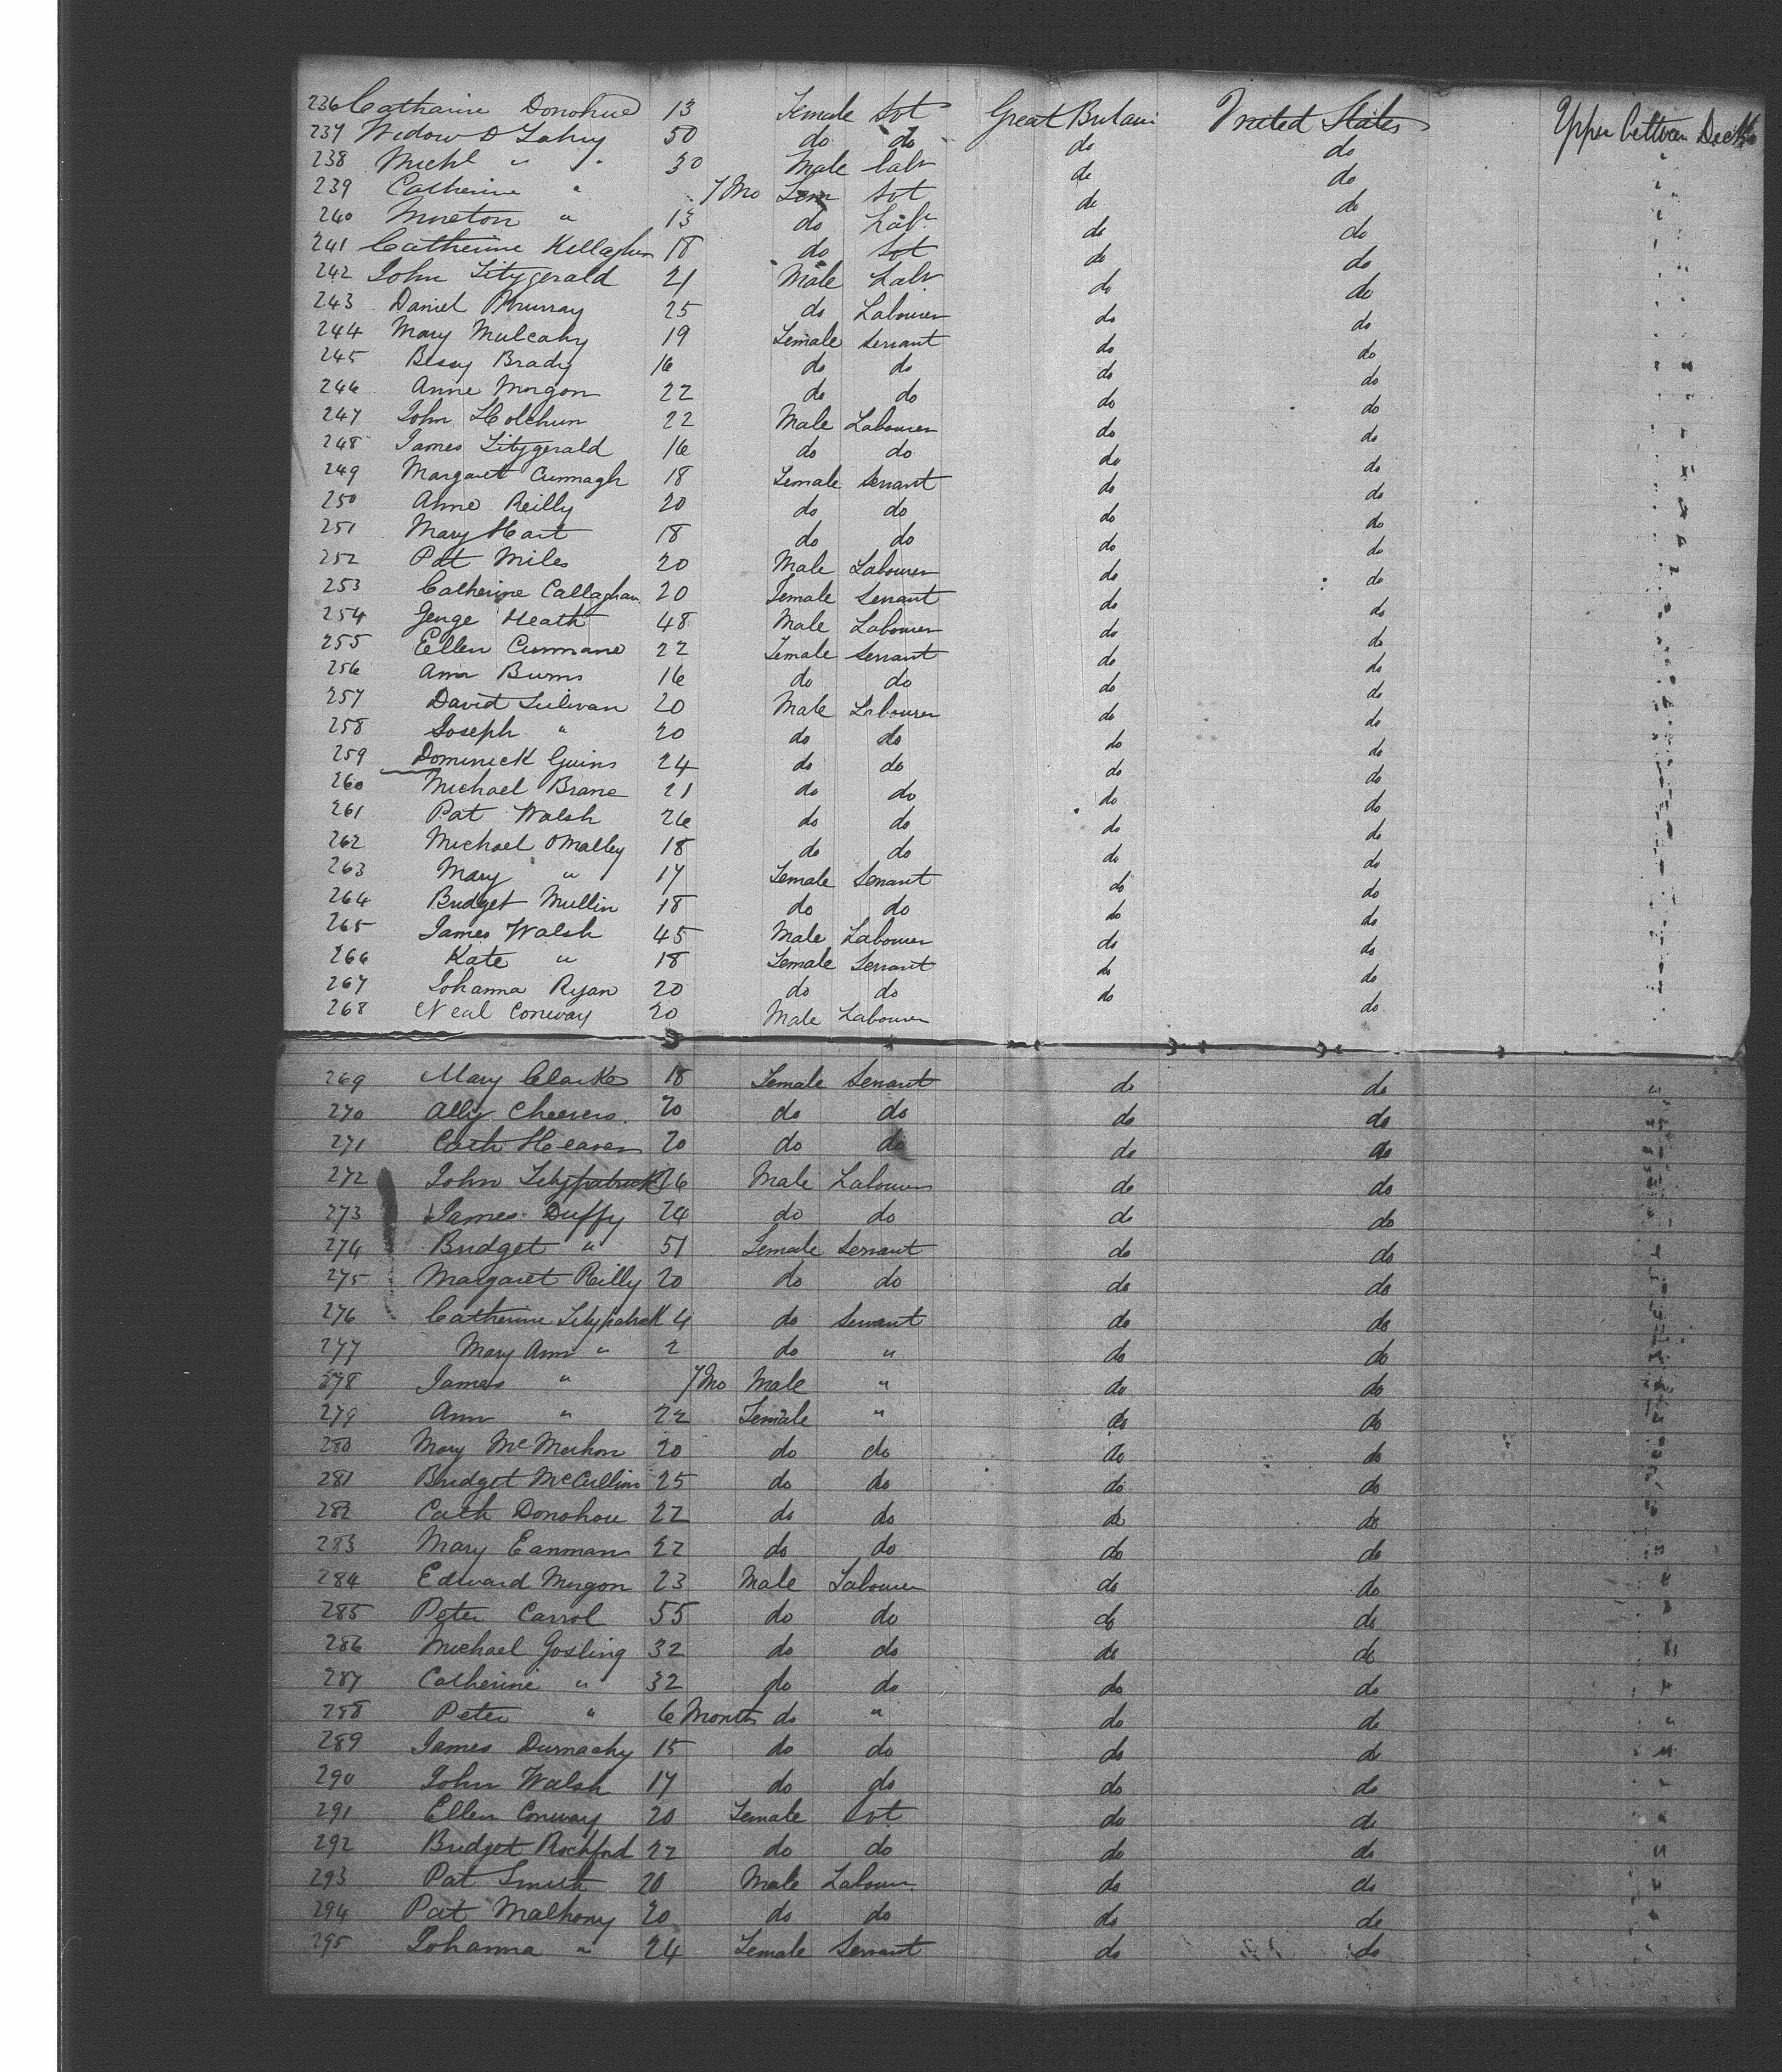 236 Catharine Donohue 13 Female Svt Great Britain United States Upper between Decks
237 Widow O Lahey 50 do do do do "
238 Michl " " 30 Male Labr do do "
239 Catherine " 7 Mo Fem Svt do do "
240 " 13 do Labr do do "
241 Catherine Kellaghan 18 do Svt do do "
242 John Fitzgerald 21 Male Labr do do "
243 Daniel Murray 25 do Labourer do do "
244 Mary Mulcahy 19 Female Servant do do "
245 Bessy Brady 16 do do do do "
246 Anne Morgan 22 do do do do "
247 John Holehun 22 Male Labourer do do "
248 James Fitzgerald 16 do do do do "
249 Margaret Cunnagh 18 Female Servant do do "
250 Anne Reilly 20 do do do do "
251 Mary Hart 18 do do do do "
252 Pat Miles 20 Male Labourer do do "
253 Catherine Callaghan 20 Female Servant do do "
254 George Heath 48 Male Labourer do do "
255 Ellen Cunnane 22 Female Servant do do "
256 Ann Burns 16 do do do do "
257 David Sulivan 20 Male Labourer do do "
258 Joseph " 20 do do do do "
259 Dominick Guins 24 do do do do "
260 Michael Brane 21 do do do do "
261 Pat Walsh 26 do do do do "
262 Michael OMalley 18 do do do do "
263 Mary " 17 Female Servant do do "
264 Bridget Mullin 18 do do do do "
265 James Walsh 45 Male Labourer do do "
266 Kate " 18 Female Servant do do "
267 Johanna Ryan 20 do do do do "
268 Neal Conway 20 Male Labourer
269 Mary Clarke 18 Female Servant do do "
270 Ally Cheevers 20 do do do do "
271 Cath Heaven 20 do do do do "
272 John Fitzpatrick 26 Male Labourer do do "
273 James Duffy 24 do do do do "
274 Bridget " 51 Female Servant do do "
275 Margaret Reilly 20 do do do do "
276 Catherine Fitzpatrick 4 do Servant do do "
277 Mary Ann " 2 do " do do "
278 James " 7 Mo Male " do do "
279 Ann " 22 Female " do do "
280 Mary McMeehon 20 do do do do "
281 Bridget McCullin 25 do do do do "
282 Cath Donohou 22 do do do do "
283 Mary Eanman 22 do do do do "
284 Edward Morgon 23 Male Labourer do do "
285 Peter Carrol 55 do do do do "
286 Michael Gosling 32 do do do do "
287 Catherine " 32 do do do do "
288 Peter " 6 Months do " do do "
289 James Durnachy 15 do do do do "
290 John Walsh 17 do do do do "
291 Ellen Conway 20 Female Svt do do "
292 Bridget Rochford 22 do do do do "
293 Pat Smith 20 Male Labour do do "
294 Pat Malhony 20 do do do do "
295 Johanna " 24 Female Servant do do "